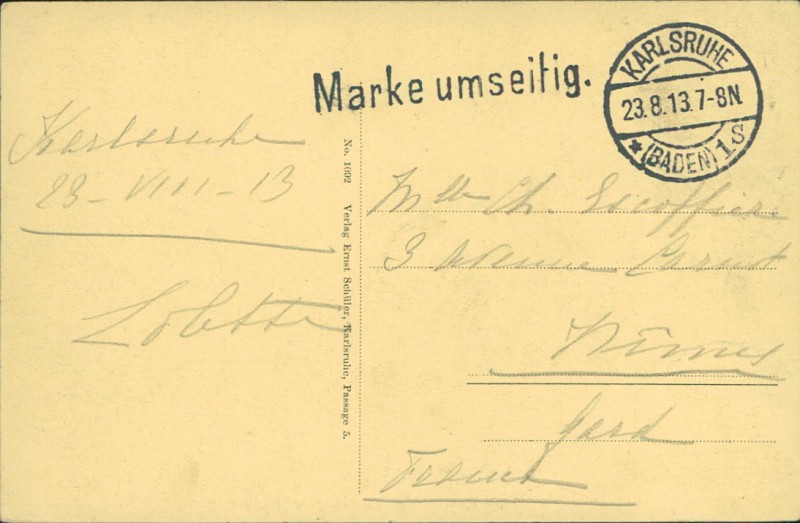 Marke umseitig.
KARLSRUHE
23.8.13.7-8N.
* (BADEN) 1S
Karlsruhe
23-VIII-13
Lolotte
No. 1092 Verlag Ernst Schüler, Karlsruhe, Passage 5.
Mlle Ch. Escoffier
3 Avenue Carnot
Nîmes
Gard
France